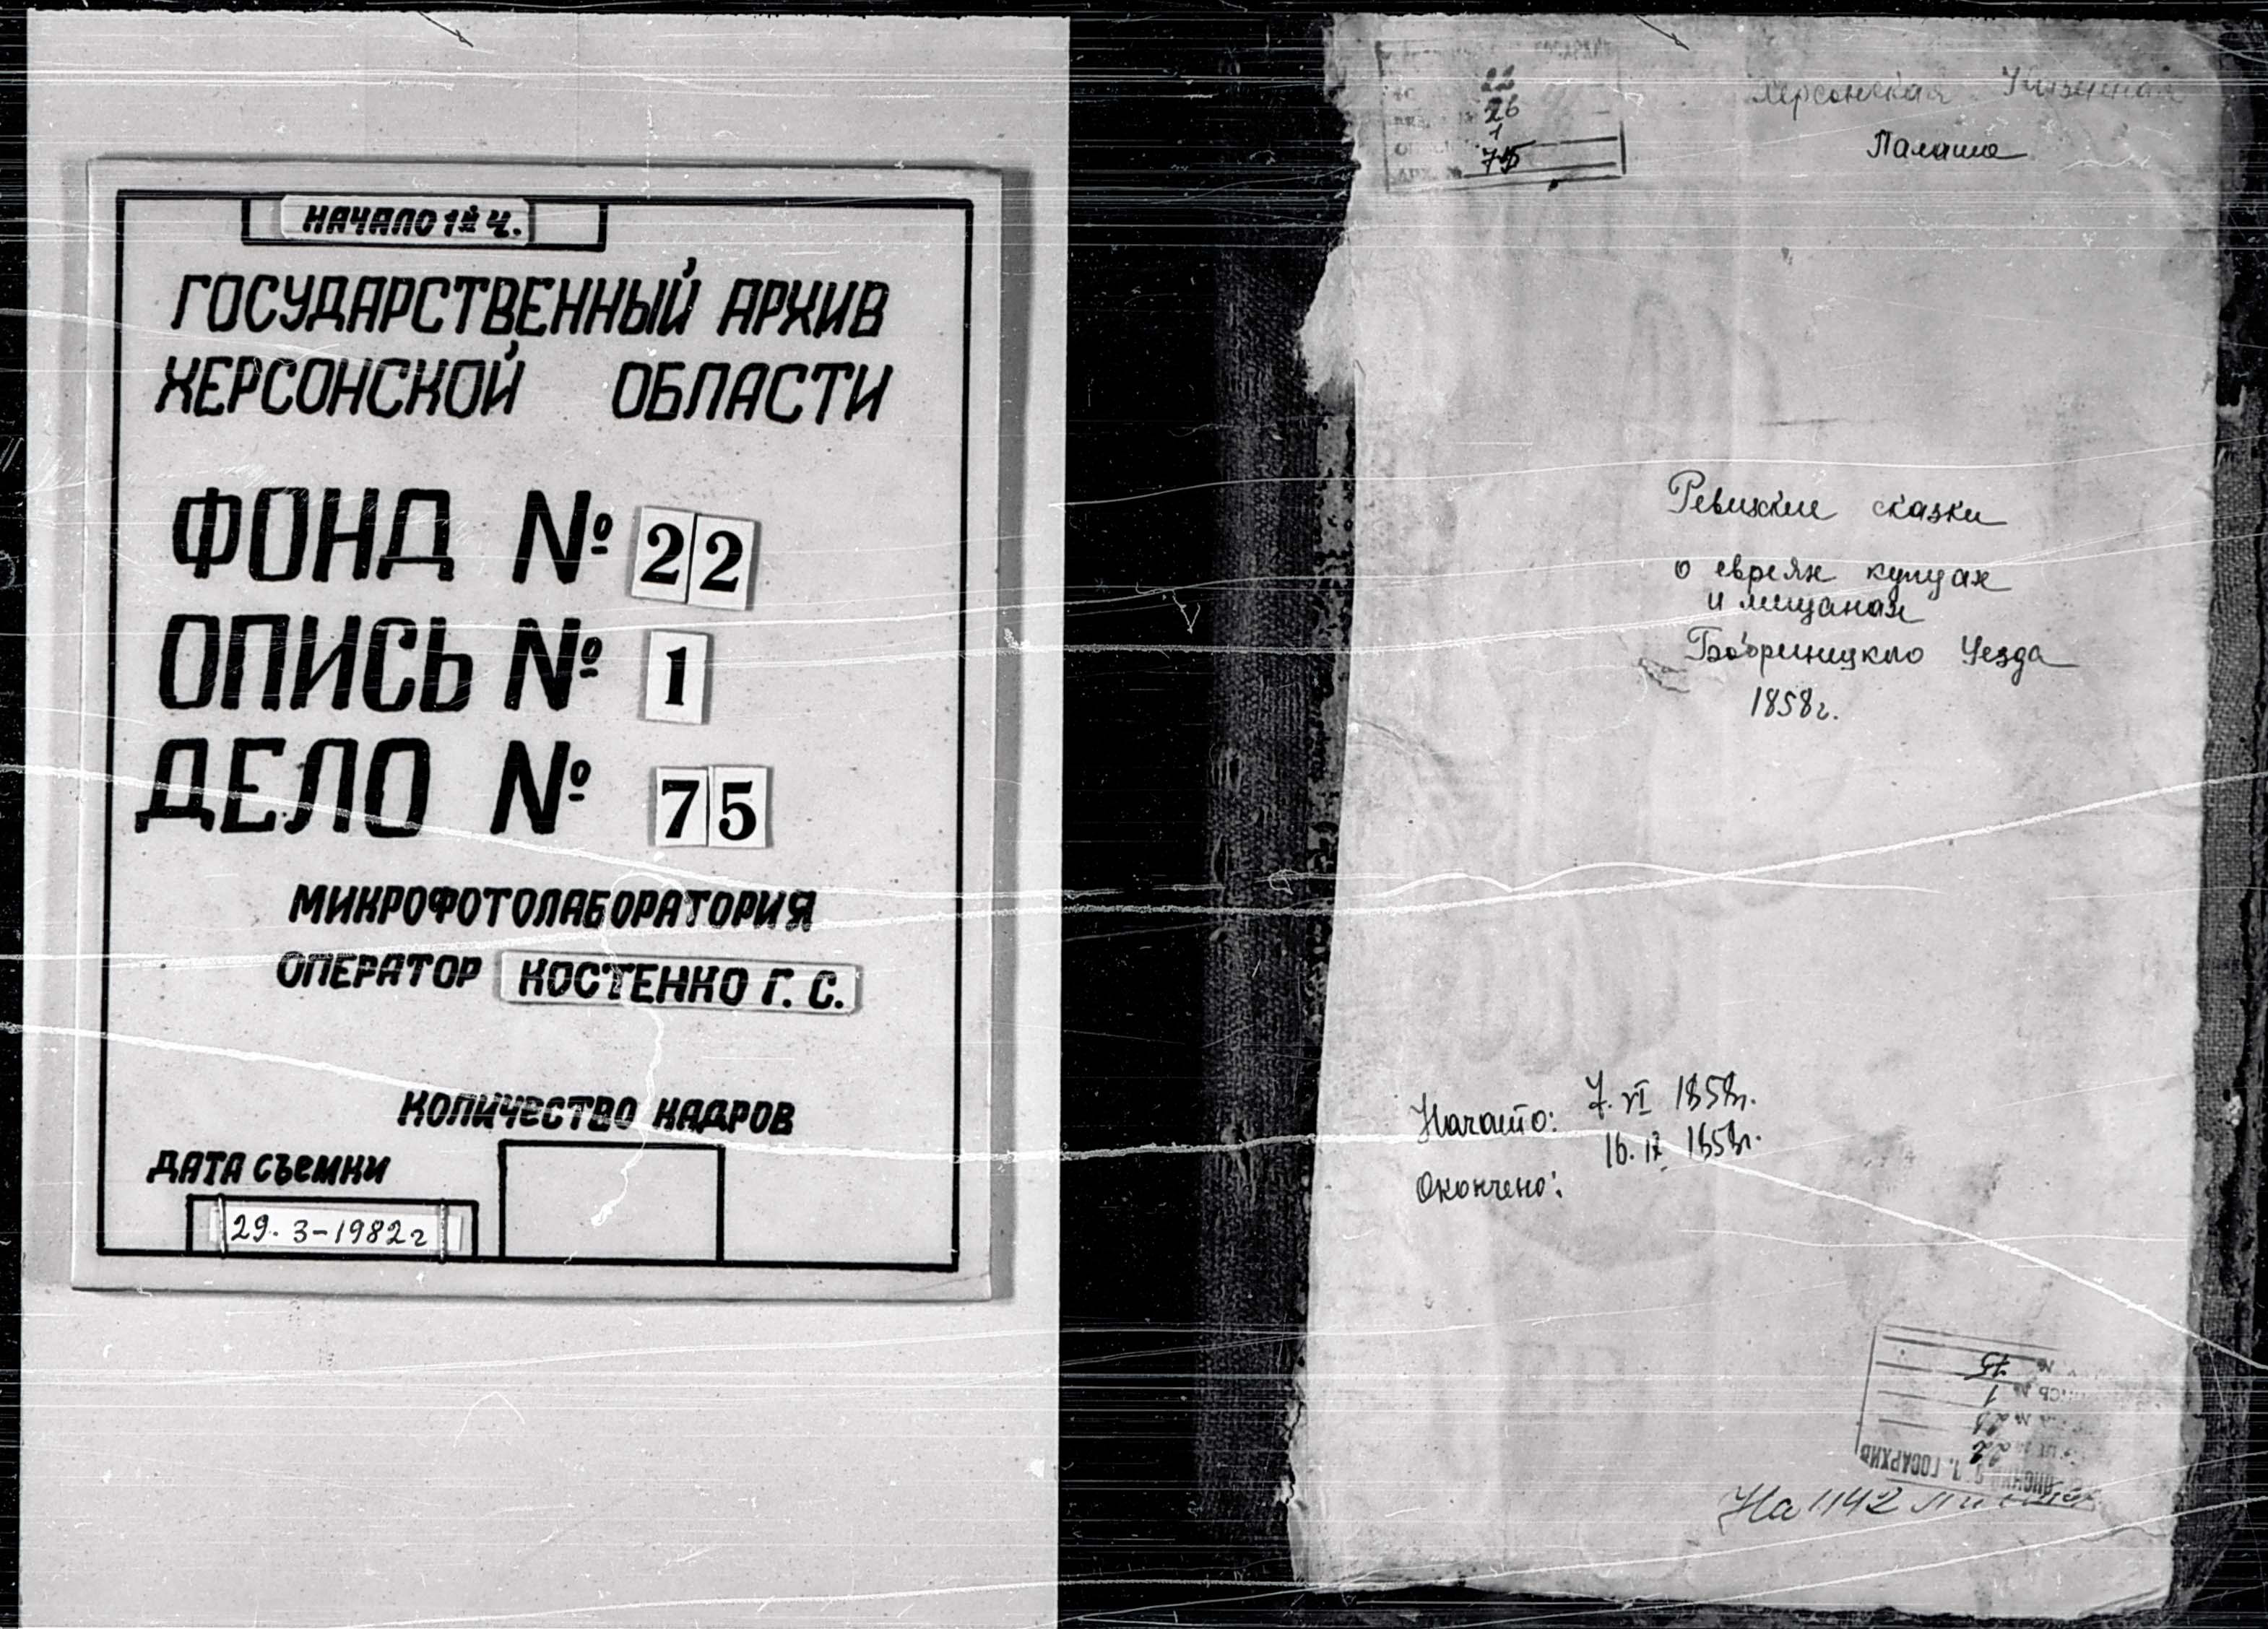 НАЧАЛО 1й Ч.
ГОСУДАРСТВЕННЫЙ АРХИВ
ХЕРСОНСКОЙ ОБЛАСТИ
ФОНД № 22
ОПИСЬ № 1
ДЕЛО № 75
МИКРОФОТОЛАБОРАТОРИЯ
ОПЕРАТОР КОСТЕНКО Г. С.
КОЛИЧЕСТВО КАДРОВ
ДАТА СЪЕМКИ
29. 3-1982г
22
26
1
75
Херсонская Казенная
Палата
Ревизкие сказки
о евреях купцах
и мещанах
Бобринецкого Уезда
1858г.
Начато: 7. VI 1858г.
16. IX 1858г.
Окончено:
75
1
22
ГОСАРХИВ
На 1142